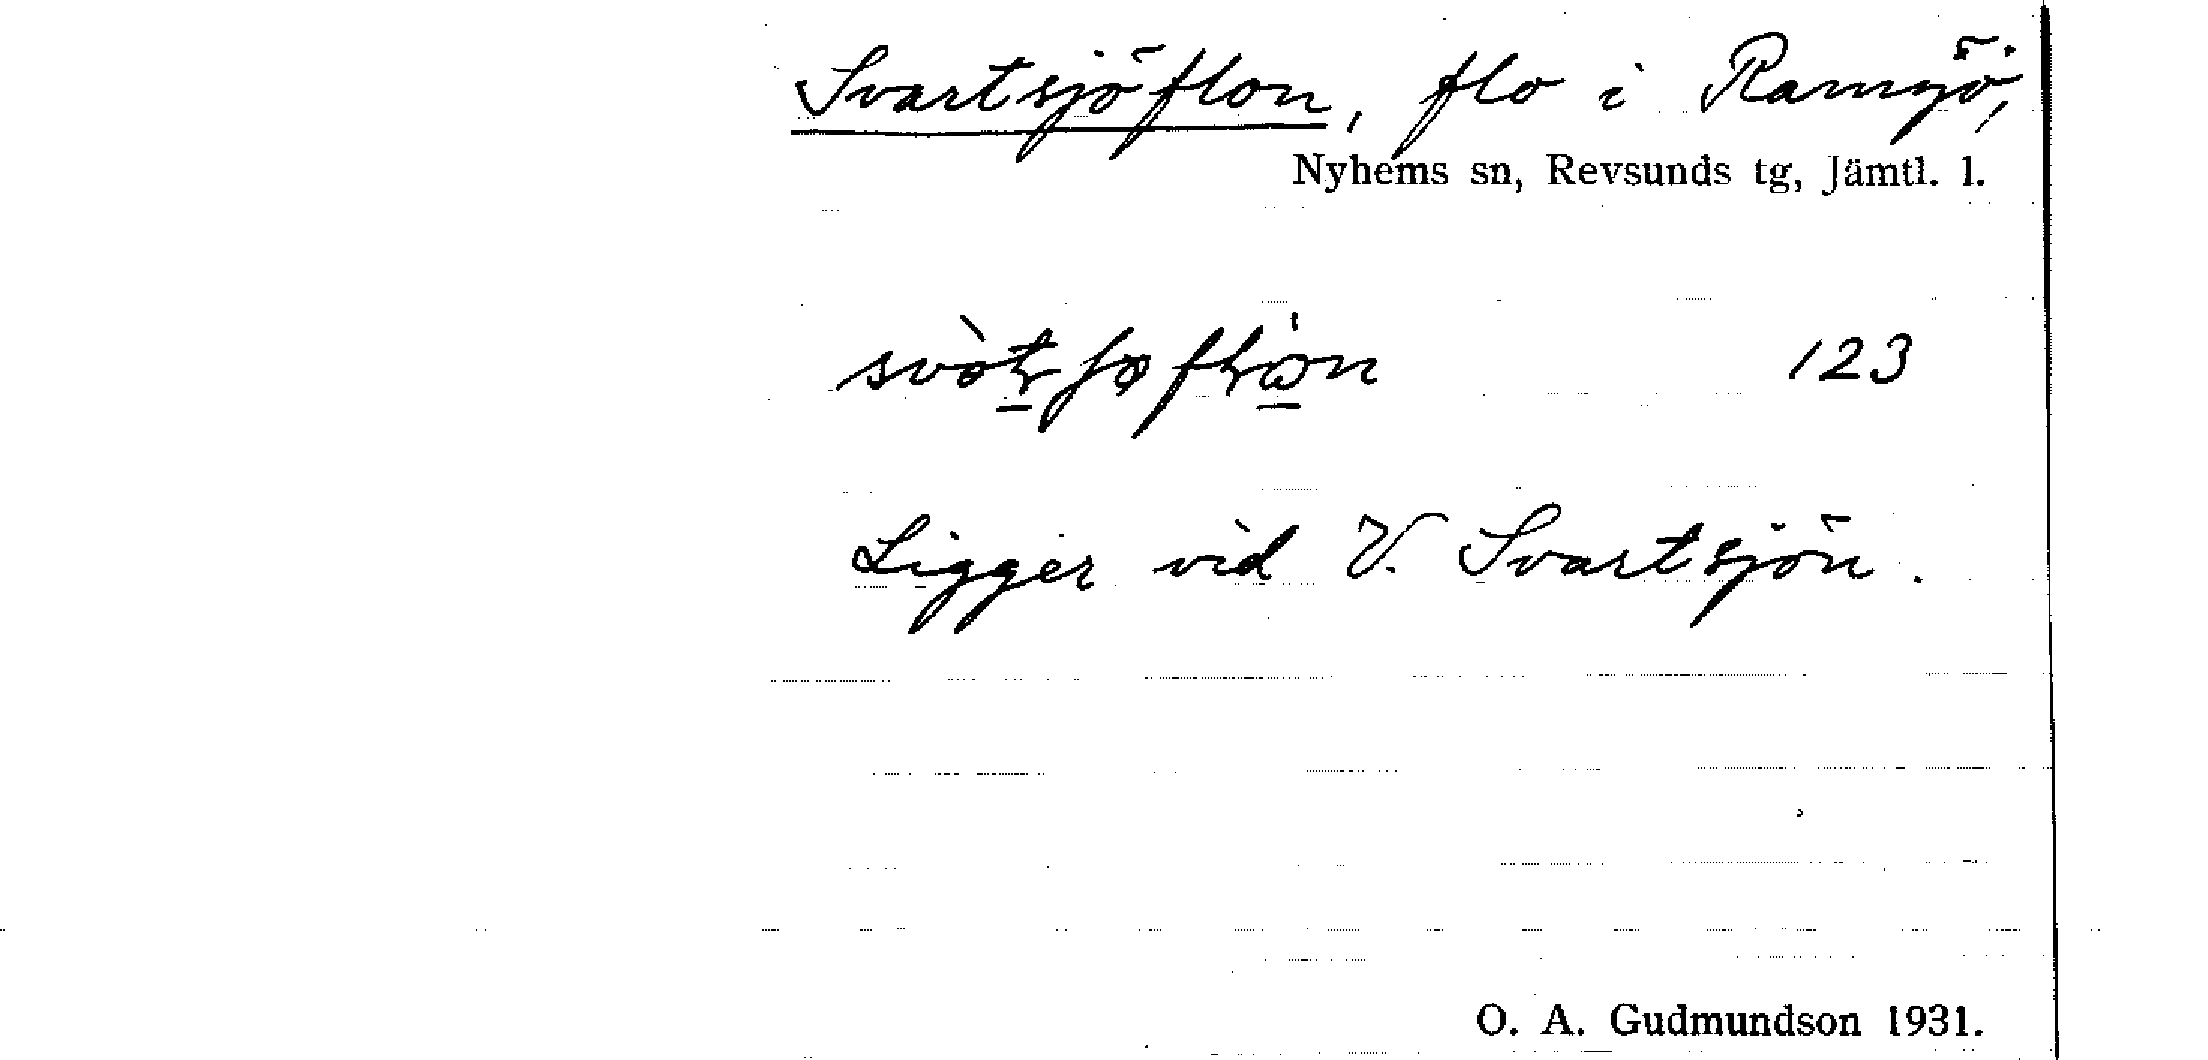 Svartsjöflon, flo i Ramsjö,
Nyhems sn, Revsunds tg, Jämtl. l.
123
Ligger vid V. Svartsjön.
O. A. Gudmundson 1931.